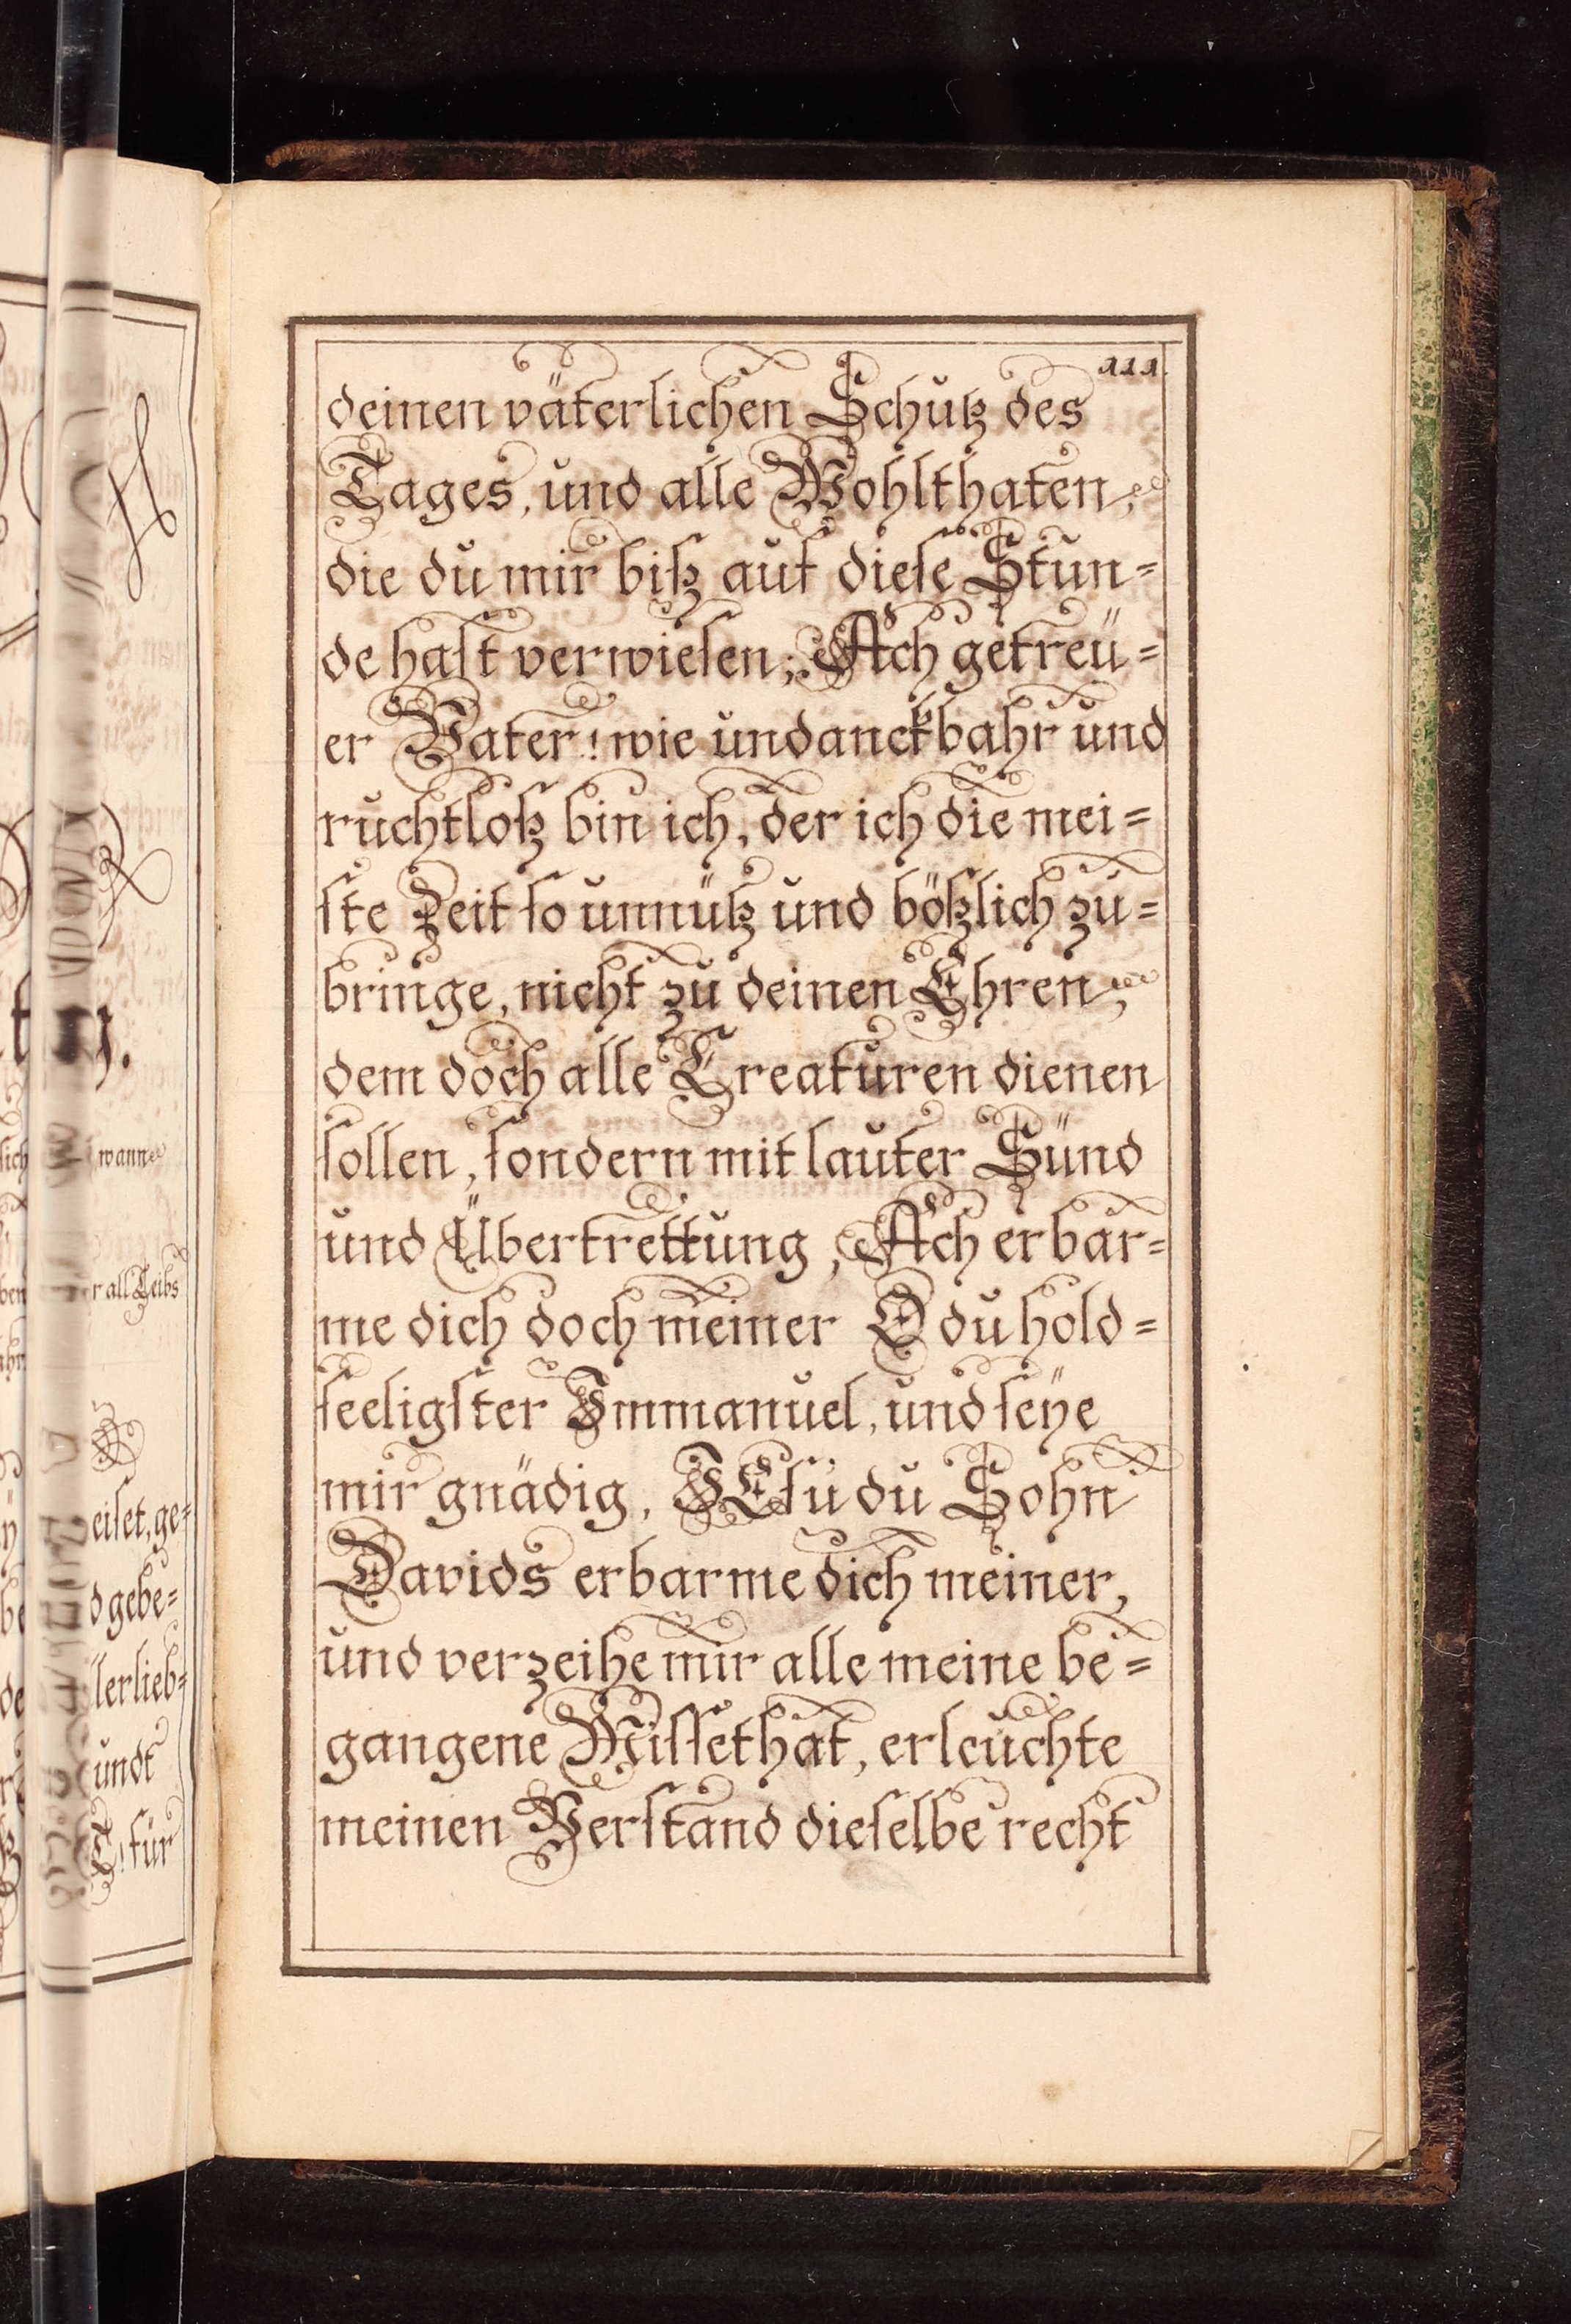 111.
deinen väterlichen Schutz des
Tages, und alle Wohlthaten,
die du mir biß auf diese Stun=
de hast verwiesen; Ach getreü=
er Vater! wie undanckbahr und
ruchtloß bin ich, der ich die mei=
ste Zeit so unnütz und bößlich zu=
bringe, nicht zu deinen Ehren,
dem doch alle Creaturen dienen
sollen, sondern mit lauter Sünd
und Übertrettung, Ach erbar=
me dich doch meiner O du hold=
seeligster Immanuel, und seÿe
mir gnädig, JEsu du Sohn
Davids erbarme dich meiner,
und verzeihe mir alle meine be=
gangene Missethat, erleuchte
meinen Verstand dieselbe recht
wann
r all Leibs
eiset, ge=
d gebe=
llerlieb=
undt
! für